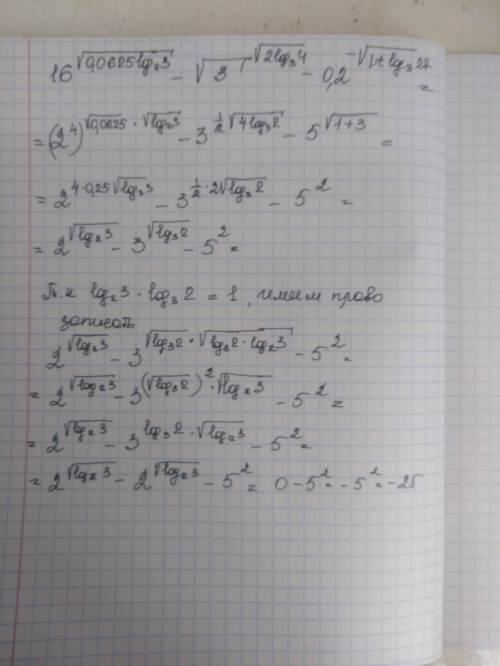 16^{\sqrt{0,0625 \log_2 3}} - \sqrt{3}^{\sqrt{2\log_3 4}} - 0,2^{-\sqrt{1+\log_3 27}} =
= (2^4)^{\sqrt{0,0625} \cdot \sqrt{\log_2 3}} - 3^{\frac{1}{2}\sqrt{4\log_3 2}} - 5^{\sqrt{1+3}} =
= 2^{4 \cdot 0,25\sqrt{\log_2 3}} - 3^{\frac{1}{2} \cdot 2\sqrt{\log_3 2}} - 5^2 =
= 2^{\sqrt{\log_2 3}} - 3^{\sqrt{\log_3 2}} - 5^2 =
Т.к \log_2 3 \cdot \log_3 2 = 1, имеем право
записать
2^{\sqrt{\log_2 3}} - 3^{\sqrt{\log_3 2} \cdot \sqrt{\log_3 2 \cdot \log_2 3}} - 5^2 =
= 2^{\sqrt{\log_2 3}} - 3^{(\sqrt{\log_3 2})^2 \cdot \sqrt{\log_2 3}} - 5^2 =
= 2^{\sqrt{\log_2 3}} - 3^{\log_3 2 \cdot \sqrt{\log_2 3}} - 5^2 =
= 2^{\sqrt{\log_2 3}} - 2^{\sqrt{\log_2 3}} - 5^2 = 0 - 5^2 = -5^2 = -25